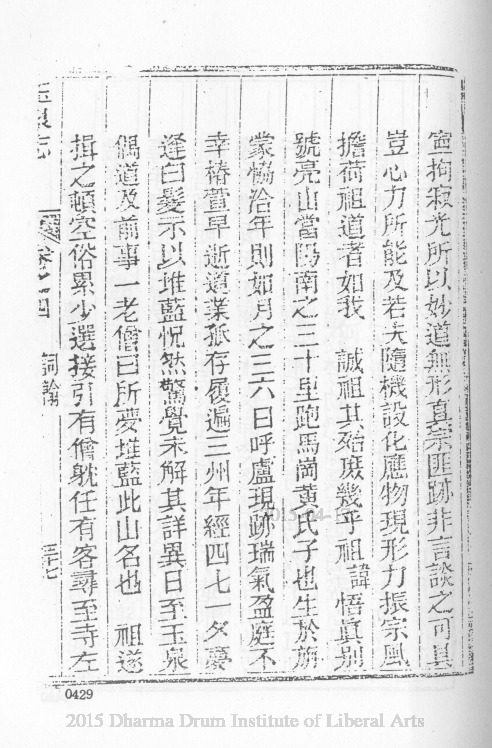 窅拘寂光所以妙道無形真宗匪跡非言談之可具
豈心力所能及若夫隨機設化應物現形力振宗風
擔荷祖道者如我 誠祖其殆庶幾乎祖 諱悟真别
號亮山當陽南之三十里跑馬崗黃氏子也生於旃
蒙協洽年則如月之三六日呼盧現跡瑞氣盈庭不
幸椿萱早逝道業孤存履遍三州年經四七一夕夢
逢白髮示以堆藍怳然驚覺未解其詳異日至玉泉
偶道及前事一老僧曰所夢堆藍此山名也 祖遂
揖之頓空俗累少選接引有僧躭任有客尋至寺左
玉泉志
卷之四 詞翰
三十七
0429
2015 Dharma Drum Institute of Liberal Arts